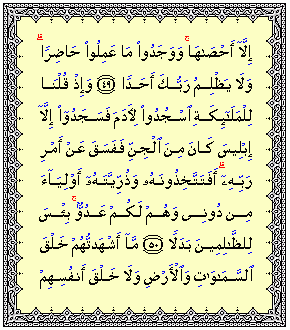 إِلَّآ أَحْصَىٰهَا ۚ وَوَجَدُوا۟ مَا عَمِلُوا۟ حَاضِرًا ۗ
وَلَا يَظْلِمُ رَبُّكَ أَحَدًا ﴿٤٩﴾ وَإِذْ قُلْنَا
لِلْمَلَٰٓئِكَةِ ٱسْجُدُوا۟ لِءَادَمَ فَسَجَدُوٓا۟ إِلَّآ
إِبْلِيسَ كَانَ مِنَ ٱلْجِنِّ فَفَسَقَ عَنْ أَمْرِ
رَبِّهِۦٓ ۗ أَفَتَتَّخِذُونَهُۥ وَذُرِّيَّتَهُۥٓ أَوْلِيَآءَ
مِن دُونِى وَهُمْ لَكُمْ عَدُوٌّۢ ۚ بِئْسَ
لِلظَّٰلِمِينَ بَدَلًا ﴿٥٠﴾ مَّآ أَشْهَدتُّهُمْ خَلْقَ
ٱلسَّمَٰوَٰتِ وَٱلْأَرْضِ وَلَا خَلْقَ أَنفُسِهِمْ